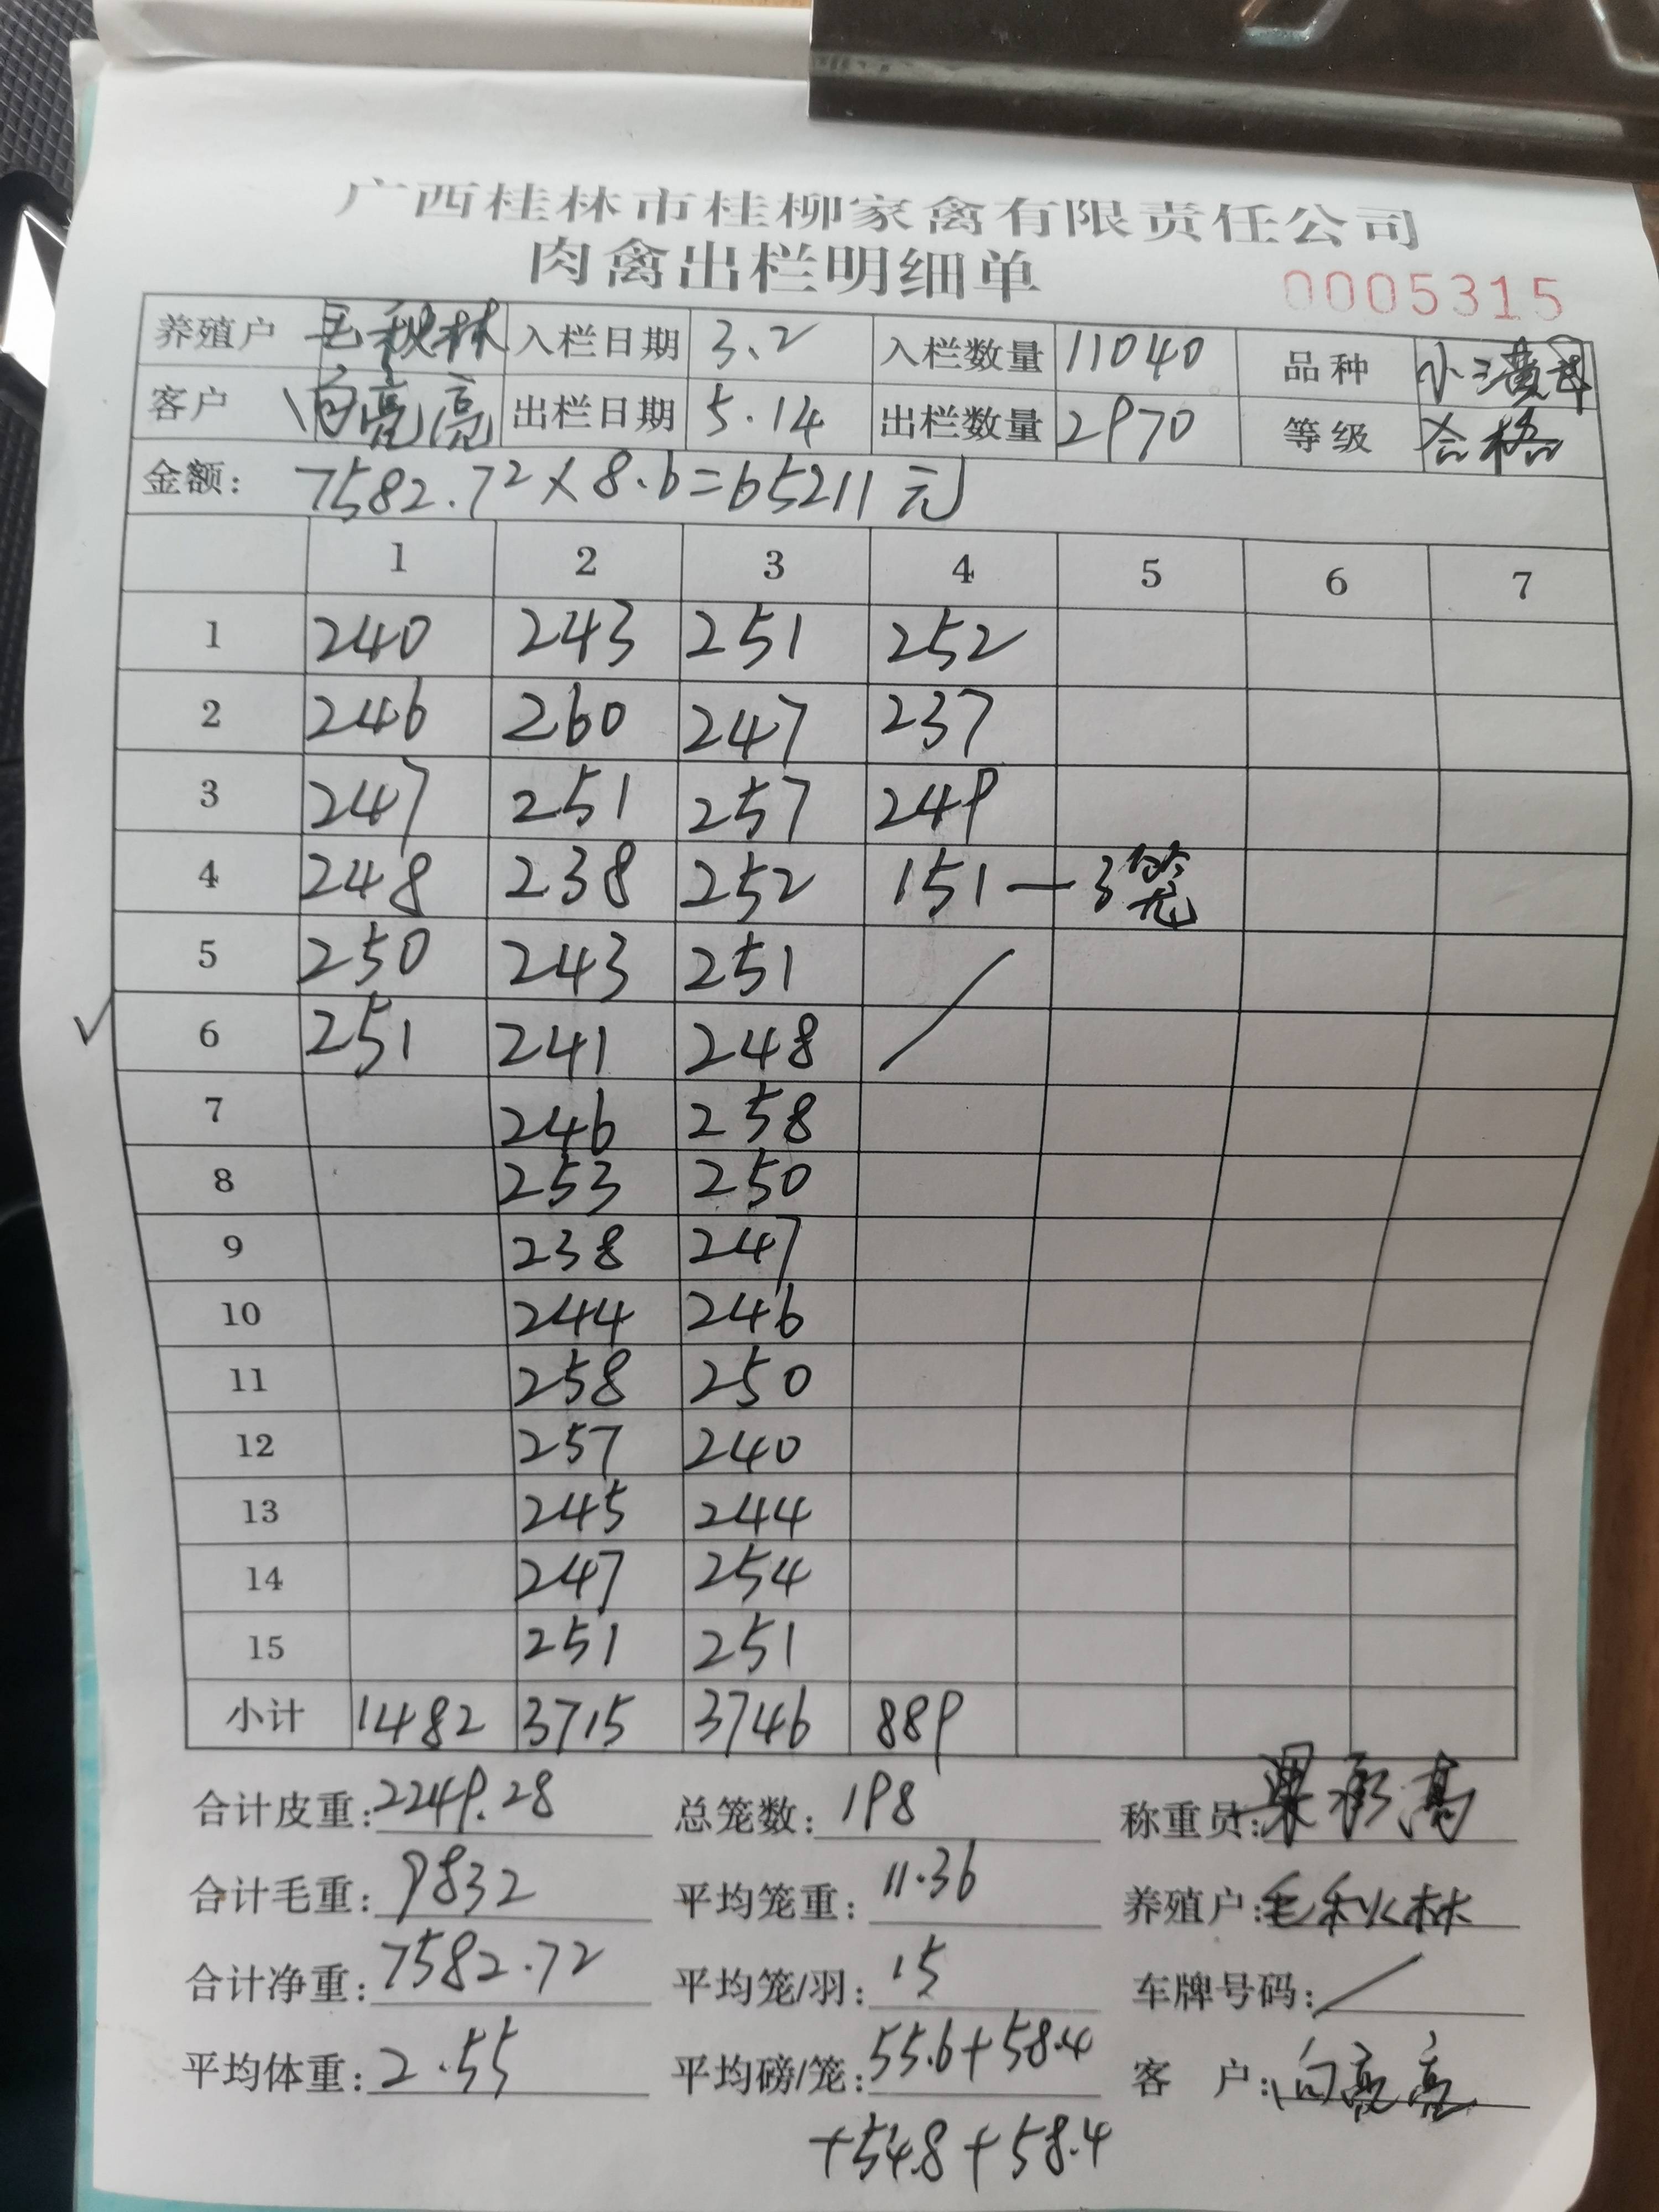 广西桂林市桂柳家禽有限责任公司
肉禽出栏明细单
0005315
养殖户 毛秋林 入栏日期 3.2 入栏数量 11040 品种
客户 向亮亮 出栏日期 5.14 出栏数量 2970 等级 合格
金额: 7582.72×8.6=65211元
1 2 3 4 5 6 7
1 240 243 251 252
2 246 260 247 237
3 247 251 257 249
4 248 238 252 151—3笼
5 250 243 251
6 251 241 248
7 246 258
8 253 250
9 238 247
10 244 246
11 258 250
12 257 240
13 245 244
14 247 254
15 251 251
小计 1482 3715 3746 889
合计皮重: 2249.28 总笼数: 198 称重员: 梁承高
合计毛重: 9832 平均笼重: 11.36 养殖户: 毛秋林
合计净重: 7582.72 平均笼/羽: 15 车牌号码: /
平均体重: 2.55 平均磅/笼: 55.6+58.4 客 户: 向亮亮
+54.8+58.4